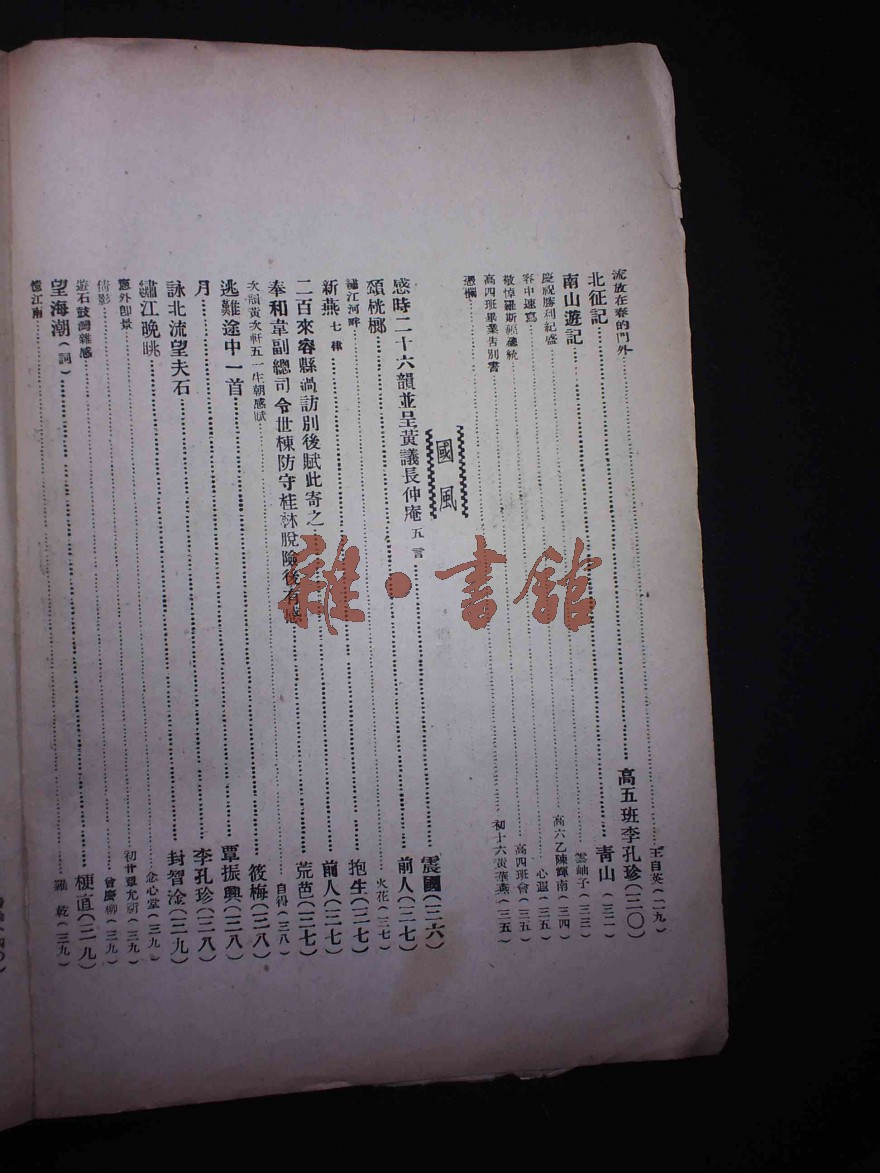 流放在春的門外……王自英（二九）
北征記……高五班李孔珍（三〇）
南山遊記……青山（三二）
慶祝勝利紀盛……雲岫子（三三）
客中速寫……高六乙陳輝南（三四）
敬悼羅斯福總統……心退（三五）
高四班畢業告別書……高四班會（三五）
憑欄……初十六黃華燕（三五）
國風
感時二十六韻並呈黃議長仲庵 五言……震國（三六）
頌桄榔……前人（三七）
繡江河畔……火花（三七）
新燕 七律……抱生（三七）
二百來容縣過訪別後賦此寄之……前人（三七）
奉和韋副總司令世棟防守桂林脫險後有感……荒芭（三七）
次韻黃次軒五一生朝感賦……自得（三八）
逃難途中一首……筱梅（三八）
月……覃振興（三八）
詠北流望夫石……李孔珍（三八）
繡江晚眺……封智淦（三九）
窗外即景……念心堂（三九）
倩影……初廿覃允新（三九）
遊石鼓灣雜感……曾慶柳（三九）
望海潮（詞）……梗直（三九）
憶江南……羅乾（三九）
雜·書館